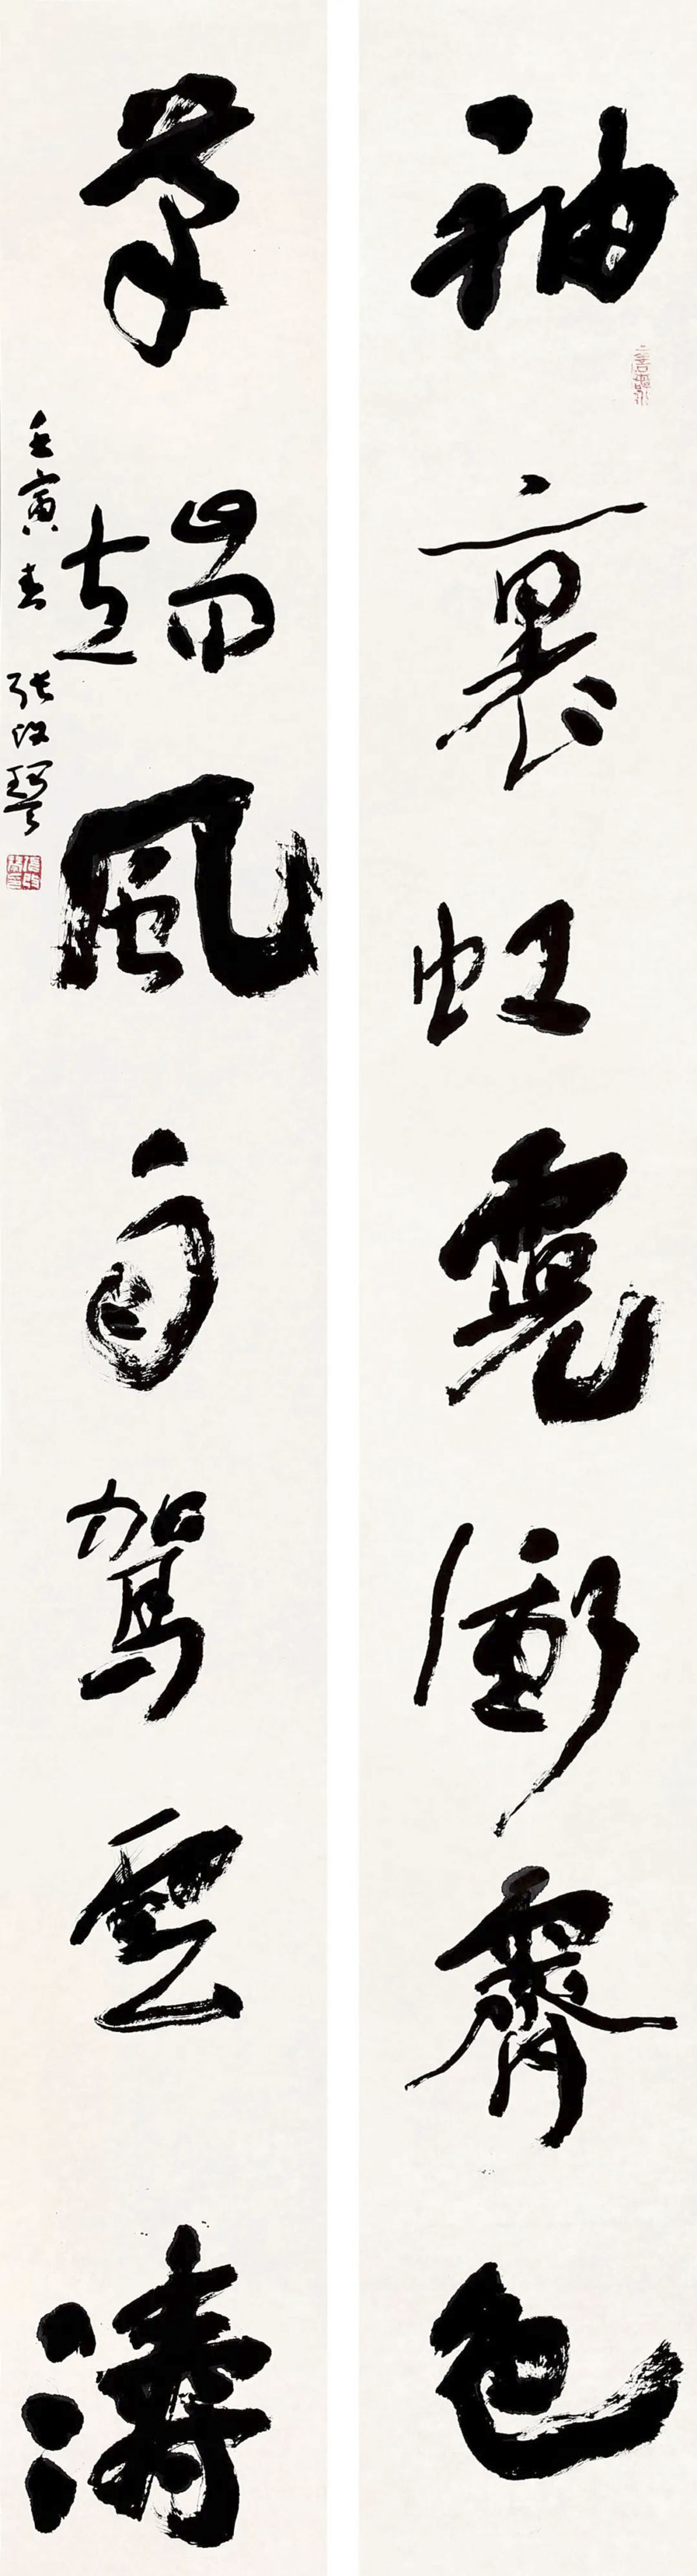 袖裏虹霓衝霽色
筆端風雨駕雲濤
壬寅春 張改琴